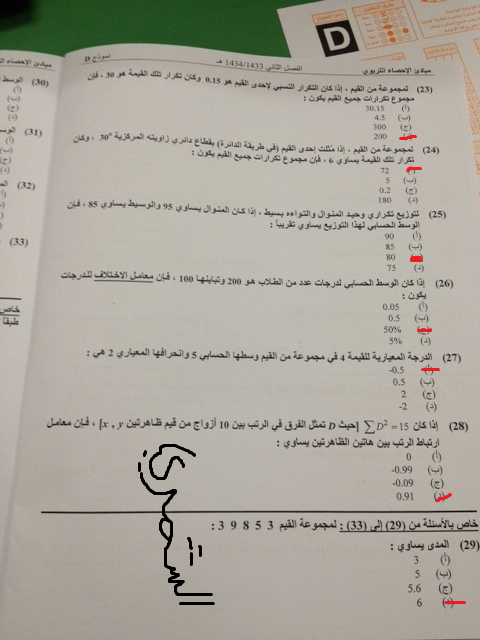 D
نموذج D
الفصل الثاني 1434/1433 هـ
مبادئ الاحصاء التربوي
مبادئ الاحصاء الت
(23) لمجموعة من القيم ، إذا كان التكرار النسبي لإحدى القيم هو 0.15 وكان تكرار تلك القيمة هو 30 ، فإن
مجموع تكرارات جميع القيم يكون :
(أ) 30.15
(ب) 4.5
(ج) 300
200
(24) لمجموعة من القيم ، إذا مُثلت إحدى القيم (في طريقة الدائرة) بقطاع دائري زاويته المركزية 30° ، وكان
تكرار تلك القيمة يساوي 6 ، فإن مجموع تكرارات جميع القيم يكون :
72
(ب) 5
(ج) 0.2
(د) 180
(25) لتوزيع تكراري وحيد المنوال والتواءه بسيط ، إذا كان المنوال يساوي 95 والوسيط يساوي 85 ، فإن
الوسط الحسابي لهذا التوزيع يساوي تقريباً :
(أ) 90
(ب) 85
80
(د) 75
(26) إذا كان الوسط الحسابي لدرجات عدد من الطلاب هو 200 وتباينها 100 ، فإن معامل الاختلاف للدرجات
يكون :
(أ) 0.05
(ب) 0.5
(ج) 50%
(د) 5%
(27) الدرجة المعيارية للقيمة 4 في مجموعة من القيم وسطها الحسابي 5 وانحرافها المعياري 2 هي :
(أ) -0.5
(ب) 0.5
(ج) 2
(د) -2
(28) إذا كان ∑D² = 15 [حيث D تمثل الفرق في الرتب بين 10 أزواج من قيم ظاهرتين x , y] ، فإن معامل
ارتباط الرتب بين هاتين الظاهرتين يساوي :
(أ) 0
(ب) -0.99
(ج) -0.09
(د) 0.91
خاص بالأسئلة من (29) إلى (33) : لمجموعة القيم 3 5 8 9 3 :
(29) المدى يساوي :
(أ) 3
(ب) 5
(ج) 5.6
(د) 6
(30) الوسط
(31)
(32)
(33)
خاص
طبقا